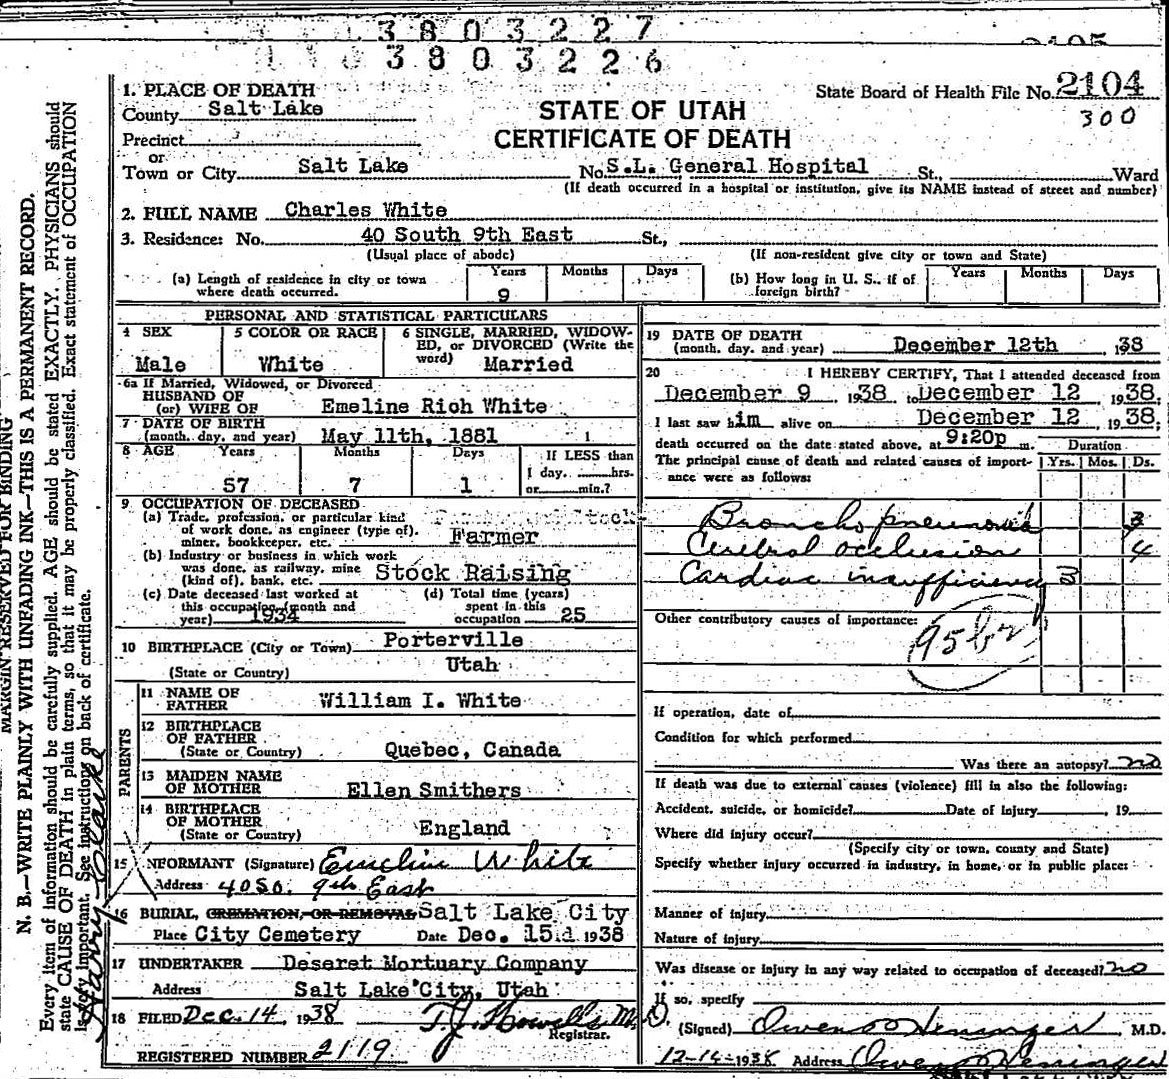 3803227
3803226
2105
State Board of Health File No. 2104
300
STATE OF UTAH
CERTIFICATE OF DEATH
1. PLACE OF DEATH
County Salt Lake
Precinct
or
Town or City Salt Lake No. S.L. General Hospital St., Ward
(If death occurred in a hospital or institution, give its NAME instead of street and number)
2. FULL NAME Charles White
3. Residence: No. 40 South 9th East St.,
(Usual place of abode) (If non-resident give city or town and State)
(a) Length of residence in city or town where death occurred. Years 9 Months Days
(b) How long in U. S., if of foreign birth? Years Months Days
PERSONAL AND STATISTICAL PARTICULARS
4 SEX Male
5 COLOR OR RACE White
6 SINGLE, MARRIED, WIDOWED, or DIVORCED (Write the word) Married
6a If Married, Widowed, or Divorced
HUSBAND OF
(or) WIFE OF Emeline Rich White
7 DATE OF BIRTH
(month, day, and year) May 11th, 1881
8 AGE Years 57 Months 7 Days 1
If LESS than
1 day, hrs.
or min.?
9 OCCUPATION OF DECEASED
(a) Trade, profession, or particular kind
of work done, as engineer (type of),
miner, bookkeeper, etc. Farmer
(b) Industry or business in which work
was done, as railway, mine
(kind of), bank, etc. Stock Raising
(c) Date deceased last worked at
this occupation (month and
year) 1934
(d) Total time (years)
spent in this
occupation 25
10 BIRTHPLACE (City or Town) Porterville
(State or Country) Utah
PARENTS
11 NAME OF
FATHER William I. White
12 BIRTHPLACE
OF FATHER
(State or Country) Quebec, Canada
13 MAIDEN NAME
OF MOTHER Ellen Smithers
14 BIRTHPLACE
OF MOTHER
(State or Country) England
15 INFORMANT (Signature) Emeline White
Address 40 So. 9th East
16 BURIAL, CREMATION, OR REMOVAL Salt Lake City
Place City Cemetery Date Dec. 15 1938
17 UNDERTAKER Deseret Mortuary Company
Address Salt Lake City, Utah
18 FILED Dec. 14, 1938 T.J. Howells M.D.
Registrar.
REGISTERED NUMBER 2119
19 DATE OF DEATH
(month, day, and year) December 12th, 38
20 I HEREBY CERTIFY, That I attended deceased from
December 9 1938 to December 12, 1938.
I last saw him alive on December 12, 1938;
death occurred on the date stated above, at 9:20p m.
Duration
The principal cause of death and related causes of importance were as follows: Yrs. Mos. Ds.
Broncho pneumonia 3
Cerebral occlusion 4
Cardiac insufficiency 3
Other contributory causes of importance:
If operation, date of
Condition for which performed
Was there an autopsy? no
If death was due to external causes (violence) fill in also the following:
Accident, suicide, or homicide? Date of injury , 19
Where did injury occur?
(Specify city or town, county and State)
Specify whether injury occurred in industry, in home, or in public place:
Manner of injury
Nature of injury
Was disease or injury in any way related to occupation of deceased? no
If so, specify
(Signed) Owen Heninger, M.D.
12-14-1938 Address
MARGIN RESERVED FOR BINDING
N. B.—WRITE PLAINLY WITH UNFADING INK—THIS IS A PERMANENT RECORD.
Every item of information should be carefully supplied. AGE should be stated EXACTLY. PHYSICIANS should
state CAUSE OF DEATH in plain terms, so that it may be properly classified. Exact statement of OCCUPATION
is very important. See instructions on back of certificate.